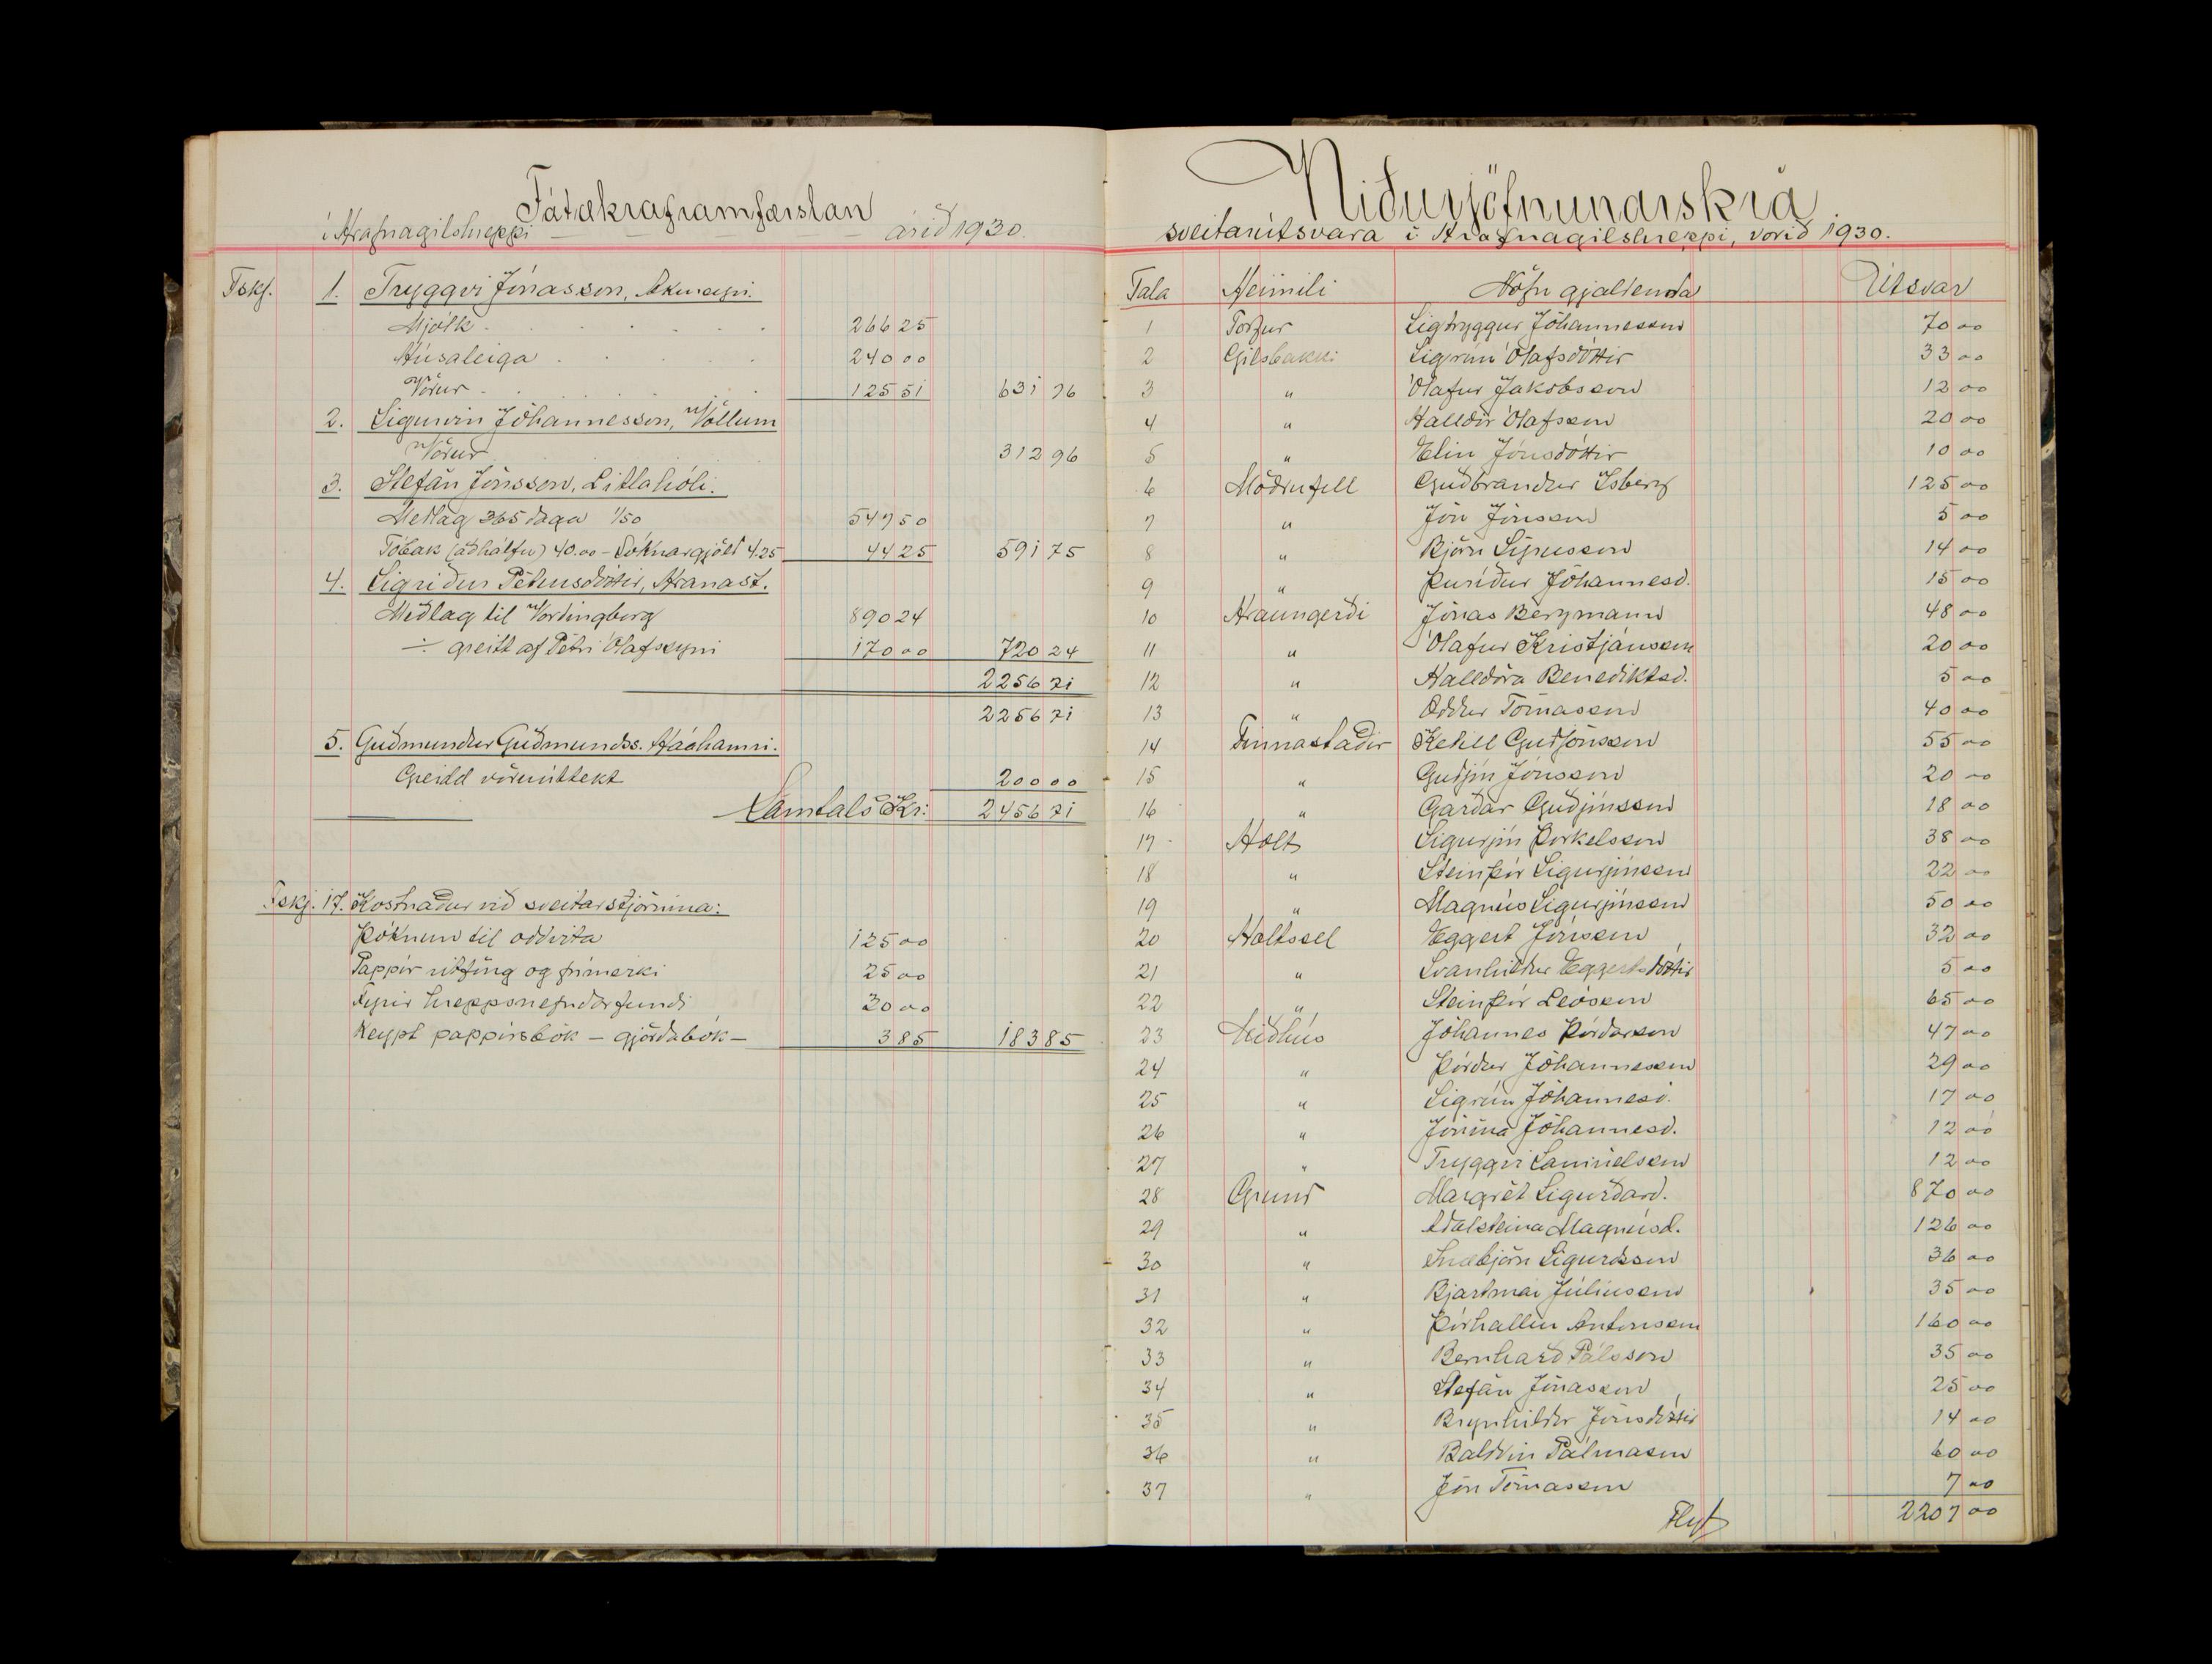 Fátækraframfærslan
í Hrafnagilshreppi árið 1930.
Fskj. 1. Tryggvi Jónasson, Akureyri.
Mjólk 266 25
Húsaleiga 240 00
Vörur 125 51 631 76
2. Sigurvin Jóhannesson, Völlum
Vörur 312 96
3. Stefán Jónsson, Litlahóli.
Meðlag 365 daga 1/50 547 50
Tóbak (að hálfu) 40.00 - Sóknargjöld 4.25 44 25 591 75
4. Sigríður Pétursdóttir, Hranast.
Meðlag til Vordingborg 890 24
÷ greitt af Pétri Ólafssyni 170 00 720 24
2256 71
2256 71
5. Guðmundur Guðmundss. Háahamri.
Greidd vöruúttekt 200 00
Samtals Kr: 2456 71
Fskj. 17. Kostnaður við sveitarstjórnina:
Þóknun til oddvita 125 00
Pappír ritföng og frímerki 25 00
Fyrir hreppsnefndarfundi 30 00
Keypt pappírsbók - gjörðabók - 3 85 183 85
Niðurjöfnunarskrá
sveitarútsvara í Hrafnagilshreppi, vorið 1930.
Tala Heimili Nöfn gjaldenda Útsvar
1 Torfur Sigtryggur Jóhannesson 70 00
2 Gilsbakki Sigrún Ólafsdóttir 33 00
3 " Ólafur Jakobsson 12 00
4 " Halldór Ólafsson 20 00
5 " Elin Jónsdóttir 10 00
6 Möðrufell Guðbrandur Ísberg 125 00
7 " Jón Jónsson 5 00
8 " Björn Sigusson 14 00
9 " Þuríður Jóhannesd. 15 00
10 Hraungerði Jónas Bergmann 48 00
11 " Ólafur Kristjánsson 20 00
12 " Halldóra Benediktsd. 5 00
13 " Oddur Tómasson 40 00
14 Finnastaðir Ketill Guðjónsson 55 00
15 " Guðjón Jónsson 20 00
16 " Garðar Guðjónsson 18 00
17 Holt Sigurjón Þorkelsson 38 00
18 " Steinþór Sigurjónsson 22 00
19 " Magnús Sigurjónsson 50 00
20 Holtssel Eggert Jónsson 32 00
21 " Svanhildur Eggertsdóttir 5 00
22 " Steinþór Leósson 65 00
23 Miðhús Jóhannes Þórðarson 47 00
24 " Þórður Jóhannesson 29 00
25 " Sigrún Jóhannesd. 17 00
26 " Jónína Jóhannesd. 12 00
27 " Tryggvi Samúelsson 12 00
28 Grund Margrét Sigurðard. 870 00
29 " Aðalsteina Magnúsd. 126 00
30 " Snæbjörn Sigurðsson 36 00
31 " Bjartmar Júlíusson 35 00
32 " Þórhallur Antonsson 160 00
33 " Bernharð Pálsson 35 00
34 " Stefán Jónasson 25 00
35 " Brynhildur Jónsdóttir 14 00
36 " Baldvin Pálmason 60 00
37 " Jón Tómasson 7 00
Flyt 2207 00